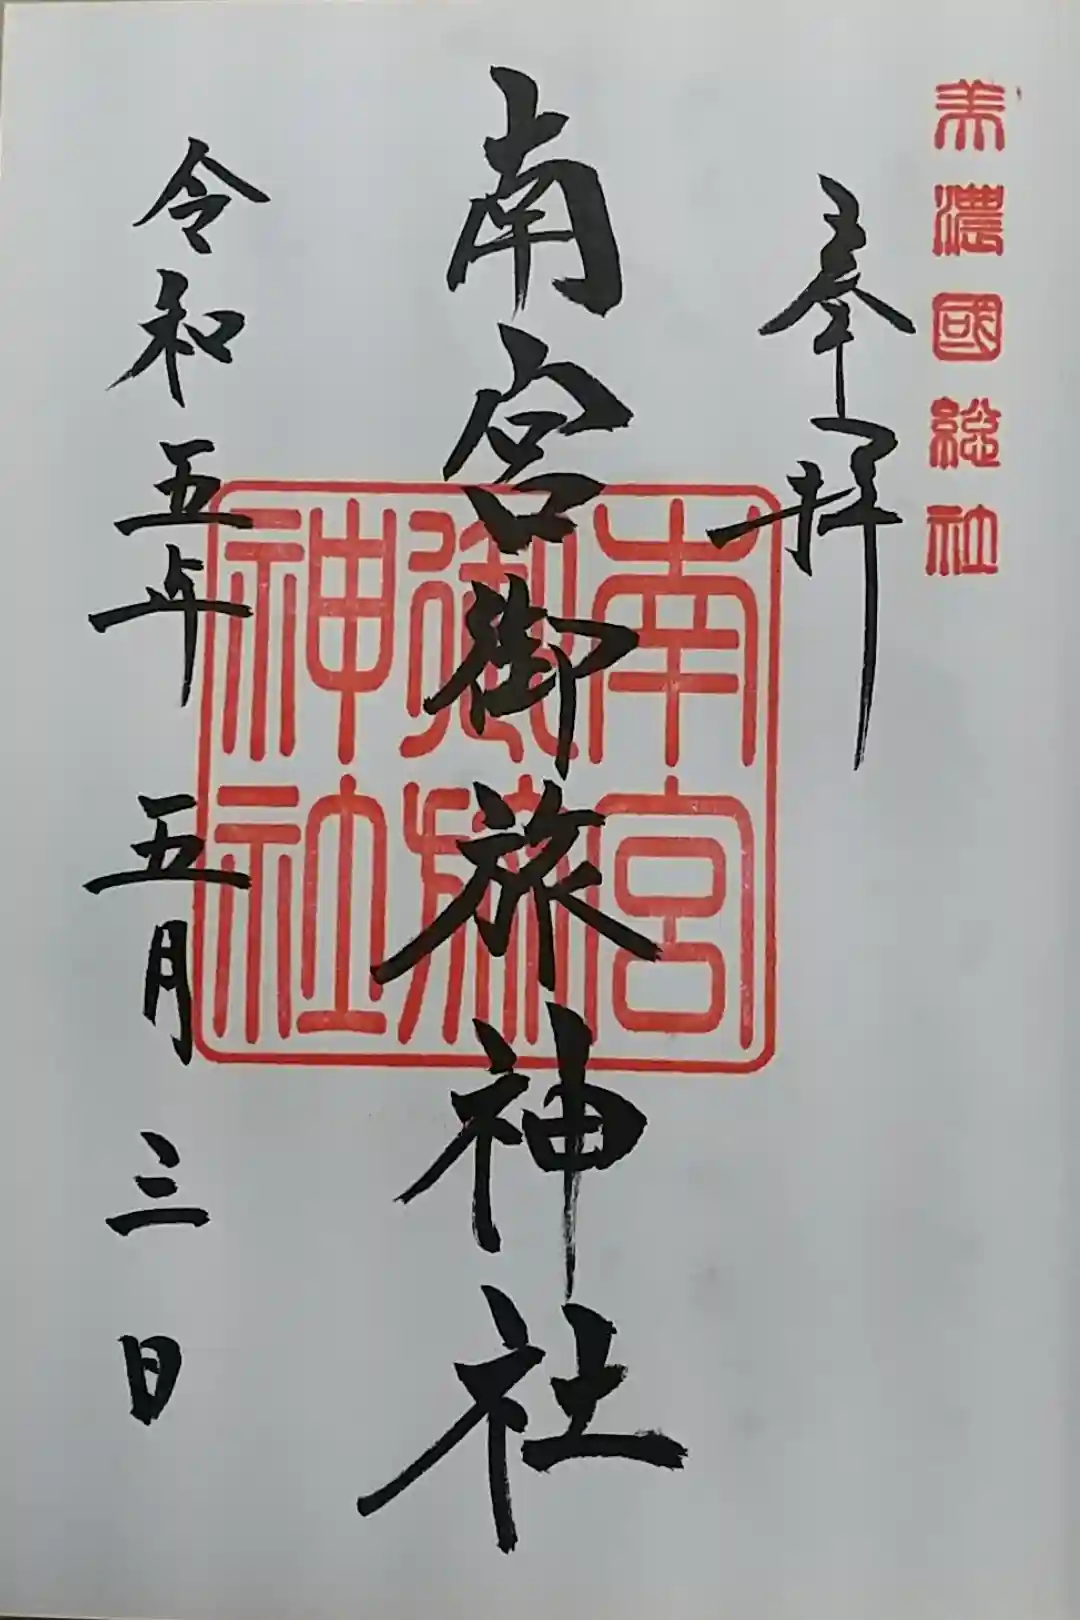 美濃國総社
奉拝
南宮御旅神社
南宮
御旅
神社
令和五年 五月 三日